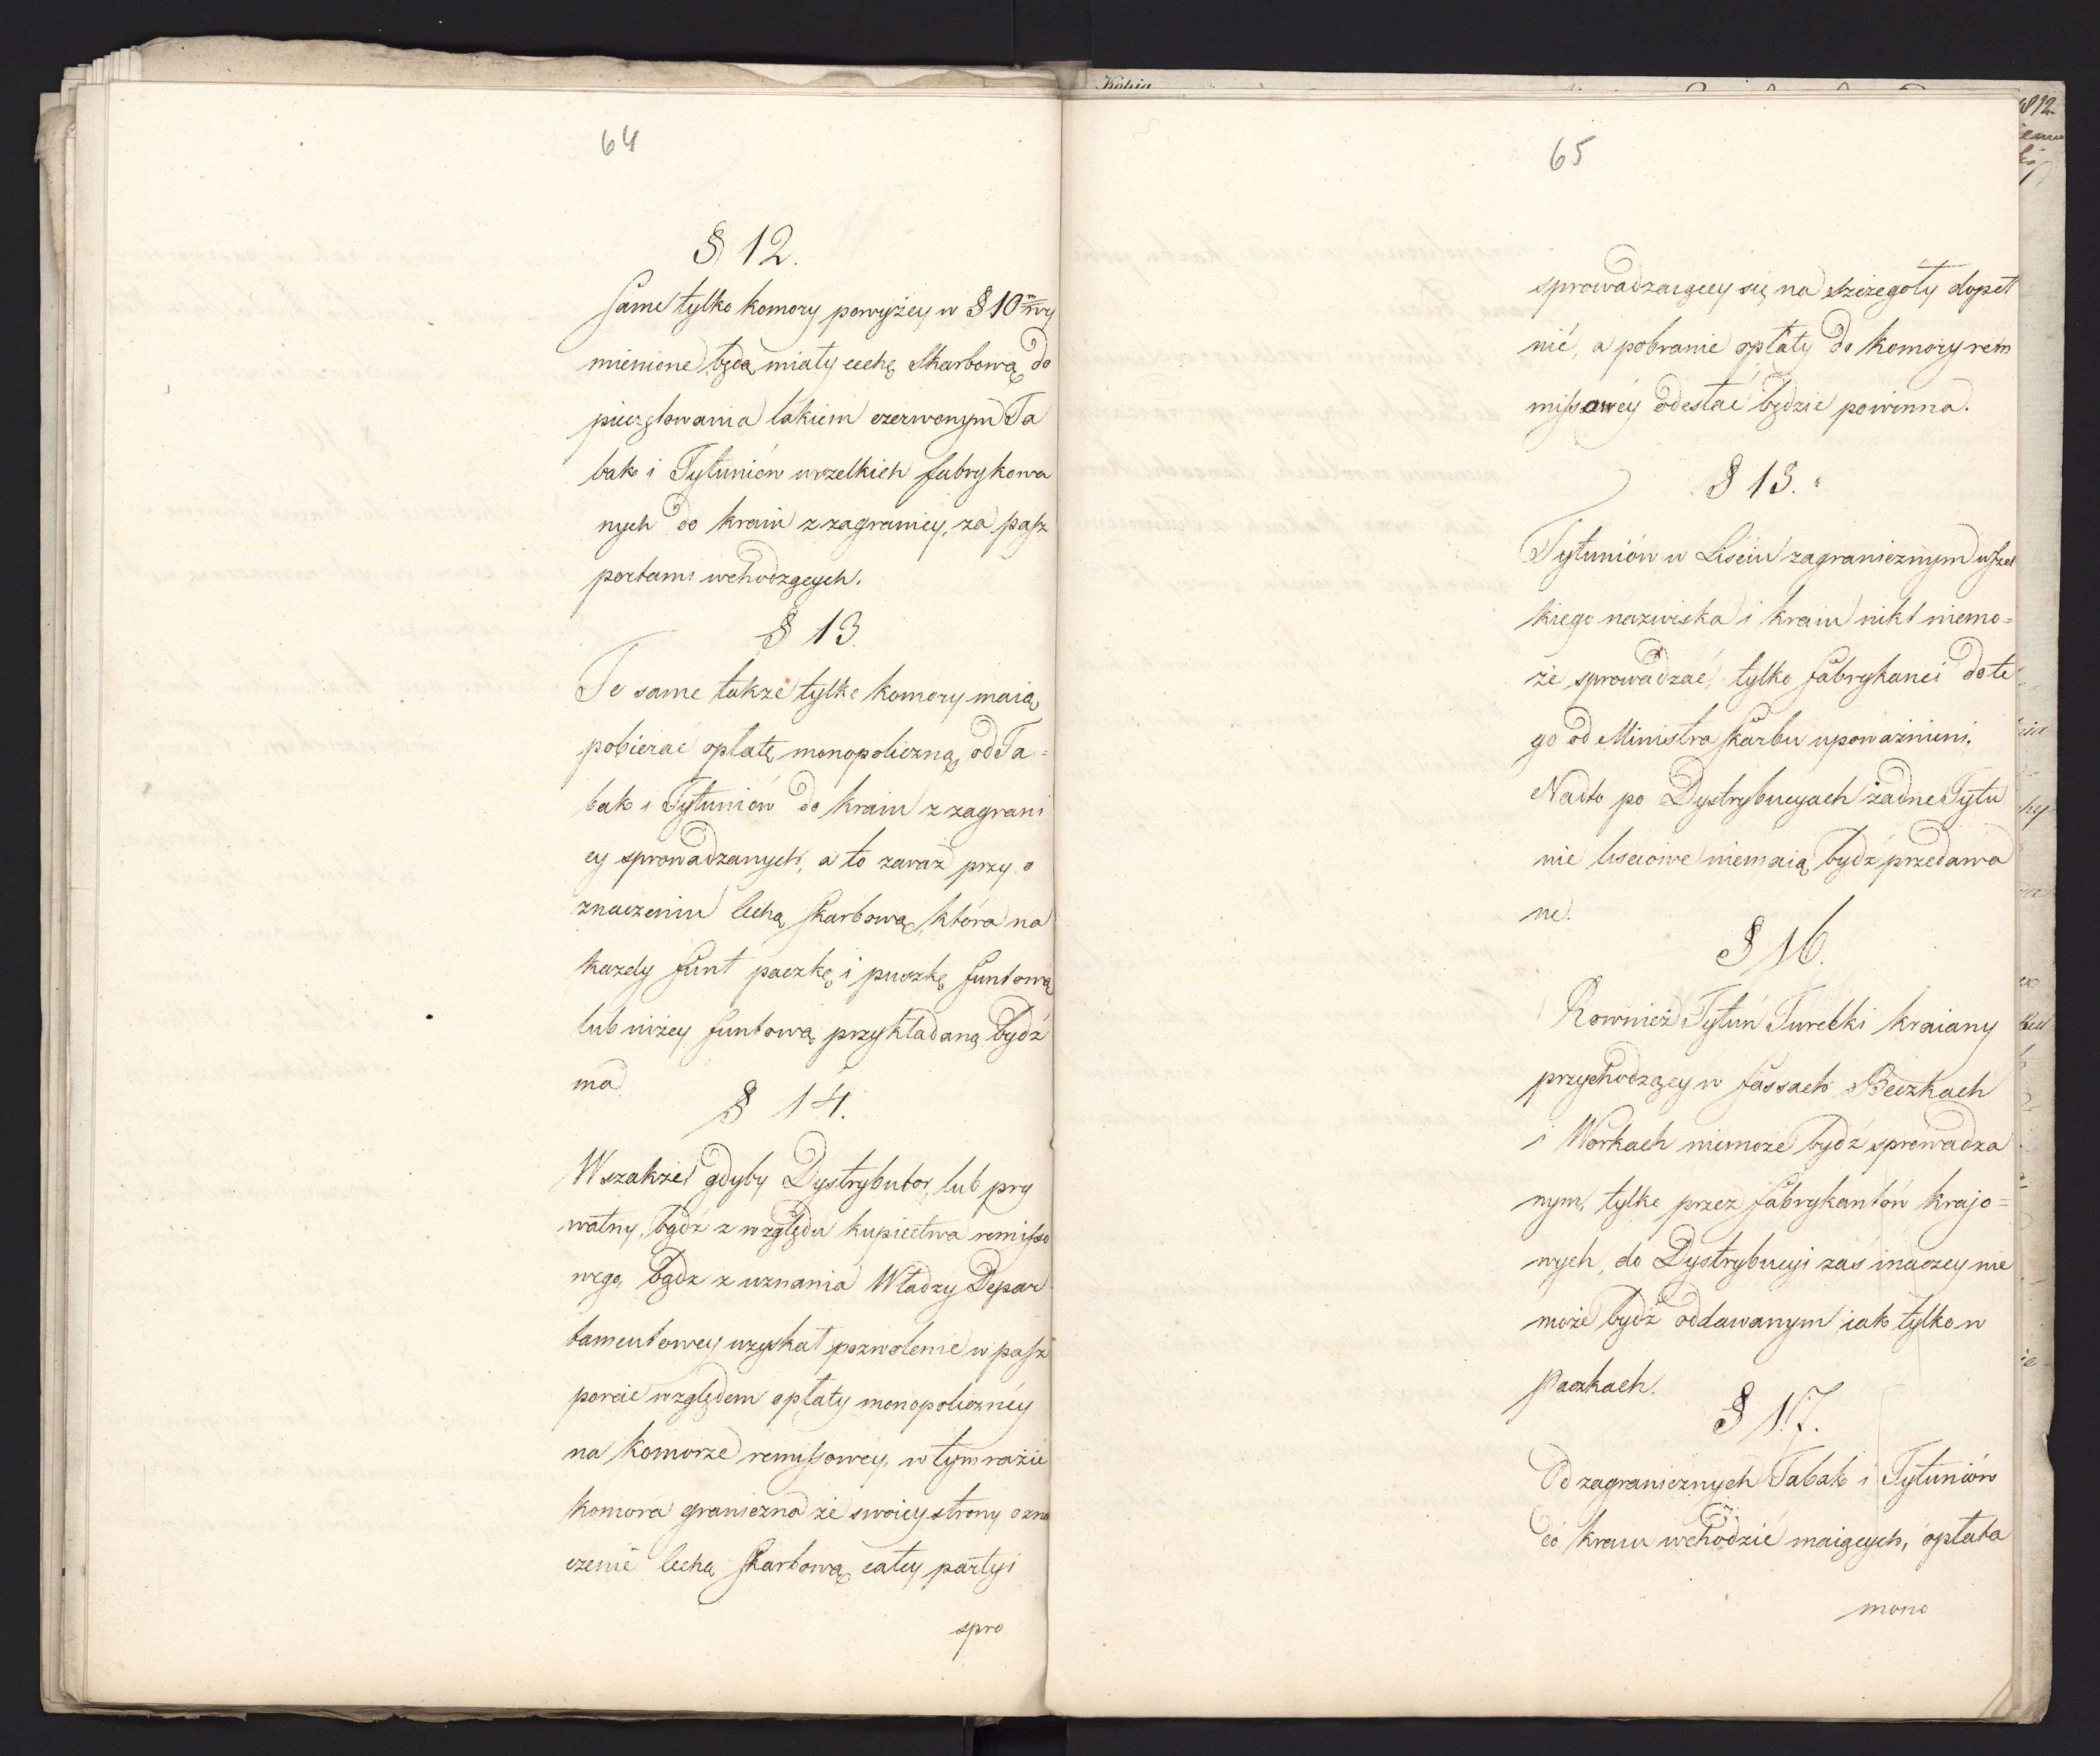 64
§ 12.
Same tylko komory powyżey w § 10m wy
mienione będą miały cechę Skarbową do
pieczętowania lakiem czerwonym Ta
bak i Tytuniów wszelkich fabrykowa
nych do kraiu z zagranicy, za pasz
portami wchodzących.
§ 13.
Te same także tylko komory maią
pobierać opłatę monopoliczną od Ta=
bak i Tytuniów do kraiu z zagrani
cy sprowadzanych, a to zaraz przy o
znaczeniu Cechą Skarbową, która na
kazdy funt paczkę i puszkę funtową
lub niżey funtową przykładaną bydź
ma.
§ 14.
Wszakże gdyby Dystrybutor, lub pry
watny, bądź z względu kupiectwa remisso
wego, bądz z uznania Władzy Depar
tamentowey uzyskał pozwolenie w pasz
porcie względem opłaty monopoliczney
na Komorze remissowéy, w tym razie
Komora graniczna ze swoiey strony ozna
czenie Cechą Skarbową całey partyi
spro
65
sprowadzaiącey się na szczegoły dopeł
nić, a pobranie opłaty do Komory rem
missowéy odesłać będzie powinna.
§ 15.
Tytuniów w Liściu zagranicznym wszel
kiego nazwiska i kraiu nikt niemo=
że sprowadzać, tylko fabrykanci do te
go od Ministra Skarbu upoważnieni.
Nadto po Dystrybucyach żadne Tytu
nie lisciowe niemaią bydź przedawa
ne.
§ 16.
Rownież Tytuń Turecki kraiany
przychodzący w fassach, Beczkach
i Workach niemoże bydź sprowadza
nym, tylko przez fabrykantów krajo=
wych, do Dystrybucyi zaś inaczey nie
może bydź oddawanym iak tylko w
paczkach.
§ 17.
Od zagranicznych Tabak i Tytuniów
do kraiu wchodzić maiących, opłata
mono